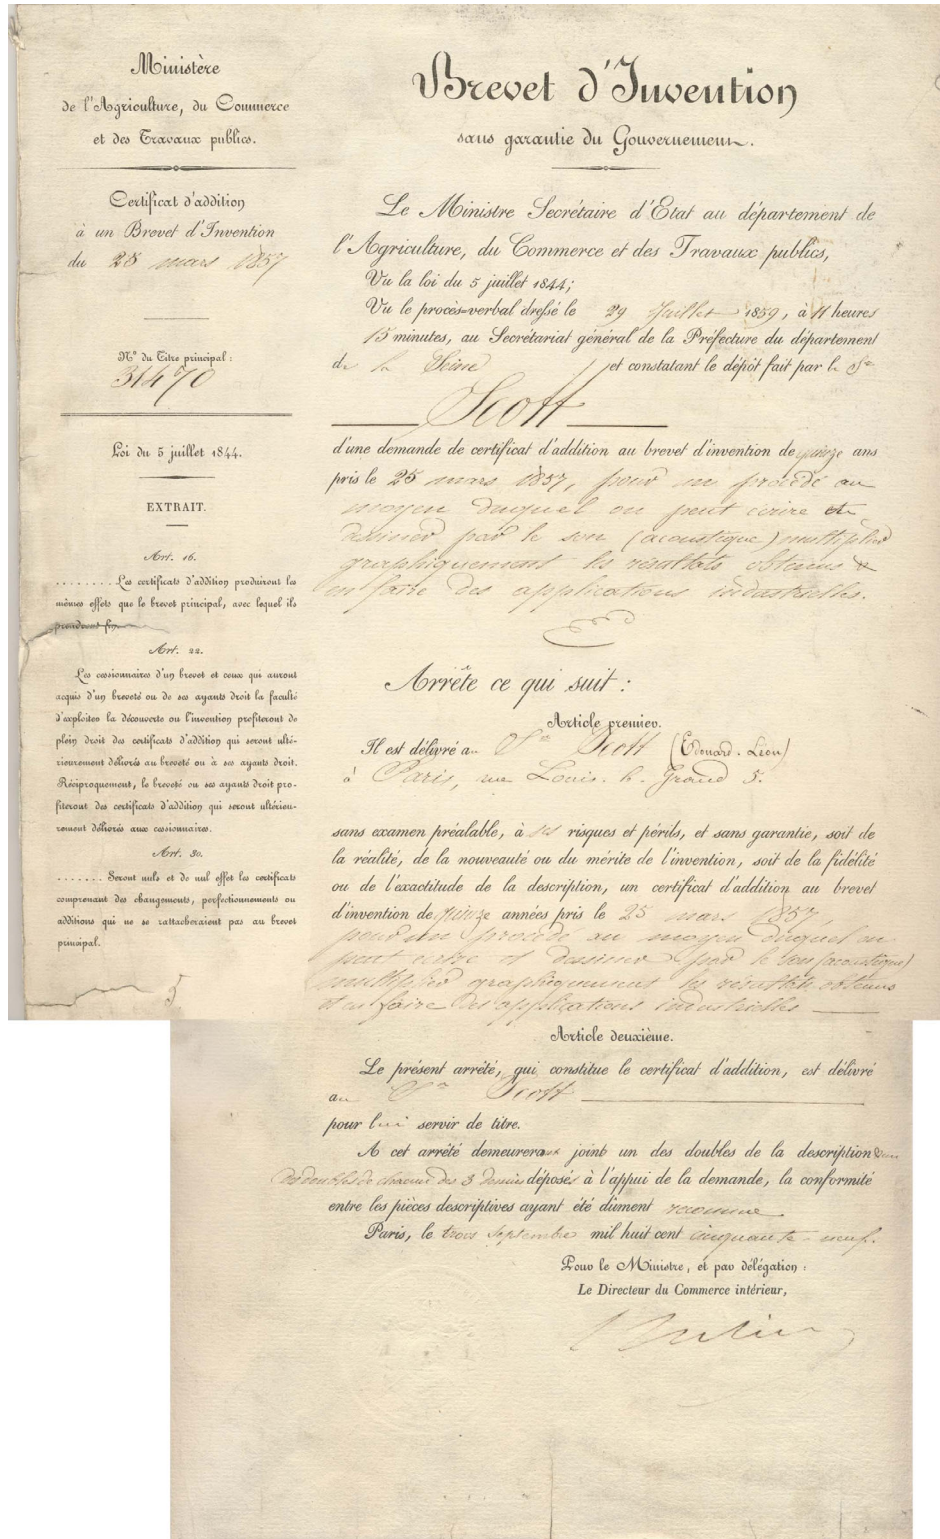 Ministère
de l'Agriculture, du Commerce
et des Travaux publics.
Certificat d'addition
à un Brevet d'Invention
du 25 mars 1857
N° du Titre principal :
31470
Loi du 5 juillet 1844.
EXTRAIT.
Art. 16.
........ Les certificats d'addition produiront les
mêmes effets que le brevet principal, avec lequel ils
prendront fin.
Art. 22.
Les cessionnaires d'un brevet et ceux qui auront
acquis d'un breveté ou de ses ayants droit la faculté
d'exploiter la découverte ou l'invention profiteront de
plein droit des certificats d'addition qui seront ulté-
rieurement délivrés au breveté ou à ses ayants droit.
Réciproquement, le breveté ou ses ayants droit pro-
fiteront des certificats d'addition qui seront ultérieu-
rement délivrés aux cessionnaires.
Art. 30.
....... Seront nuls et de nul effet les certificats
comprenant des changements, perfectionnements ou
additions qui ne se rattacheraient pas au brevet
principal.
5
Brevet d'Invention
sans garantie du Gouvernement.
Le Ministre Secrétaire d'Etat au département de
l'Agriculture, du Commerce et des Travaux publics,
Vu la loi du 5 juillet 1844;
Vu le procès-verbal dressé le 29 Juillet 1859, à 11 heures
15 minutes, au Secrétariat général de la Préfecture du département
de la Seine et constatant le dépôt fait par le Sr
Scott
d'une demande de certificat d'addition au brevet d'invention de quinze ans
pris le 25 mars 1857, pour un procédé au
moyen duquel on peut écrire et
dessiner par le son (acoustique) multiplier
graphiquement les résultats obtenus &
en faire des applications industrielles.
Arrête ce qui suit :
Article premier.
Il est délivré au Sr Scott (Edouard-Léon)
à Paris, rue Louis-le-Grand 5.
sans examen préalable, à ses risques et périls, et sans garantie, soit de
la réalité, de la nouveauté ou du mérite de l'invention, soit de la fidélité
ou de l'exactitude de la description, un certificat d'addition au brevet
d'invention de quinze années pris le 25 mars 1857,
pour un procédé au moyen duquel on
peut écrire et dessiner par le son (acoustique)
multiplier graphiquement les résultats obtenus
et en faire des applications industrielles
Article deuxième.
Le présent arrêté, qui constitue le certificat d'addition, est délivré
au Sr Scott
pour lui servir de titre.
A cet arrêté demeureront joint un des doubles de la description & un
des doubles de chacun des 3 dessins déposés à l'appui de la demande, la conformité
entre les pièces descriptives ayant été dûment reconnue
Paris, le trois Septembre mil huit cent cinquante-neuf.
Pour le Ministre, et par délégation :
Le Directeur du Commerce intérieur,